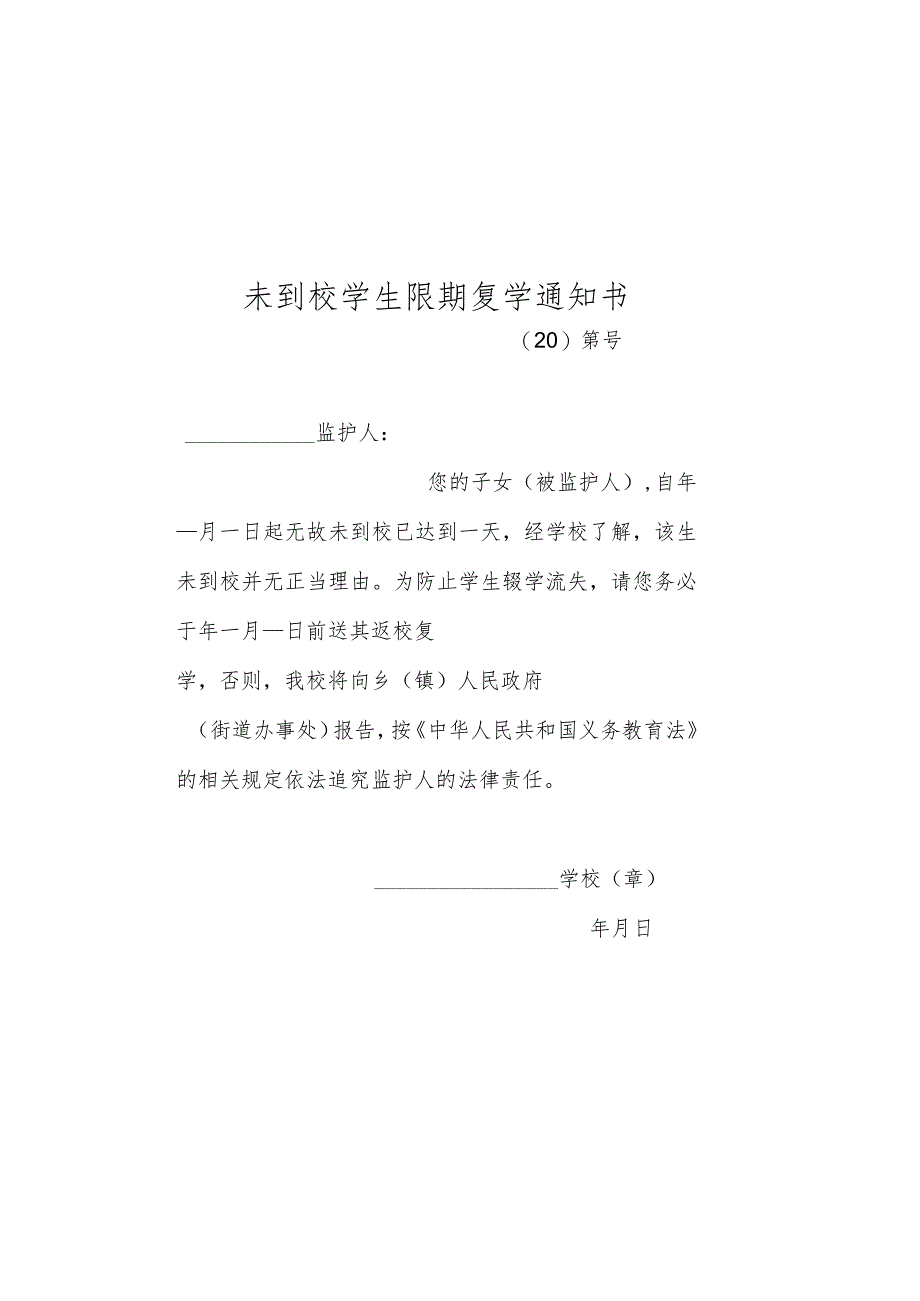 未到校学生限期复学通知书
（20）第号
____________监护人：
您的子女（被监护人）,自年
—月一日起无故未到校已达到一天，经学校了解，该生
未到校并无正当理由。为防止学生辍学流失，请您务必
于年一月—日前送其返校复
学，否则，我校将向乡（镇）人民政府
（街道办事处）报告，按《中华人民共和国义务教育法》
的相关规定依法追究监护人的法律责任。
_________________学校（章）
年月日